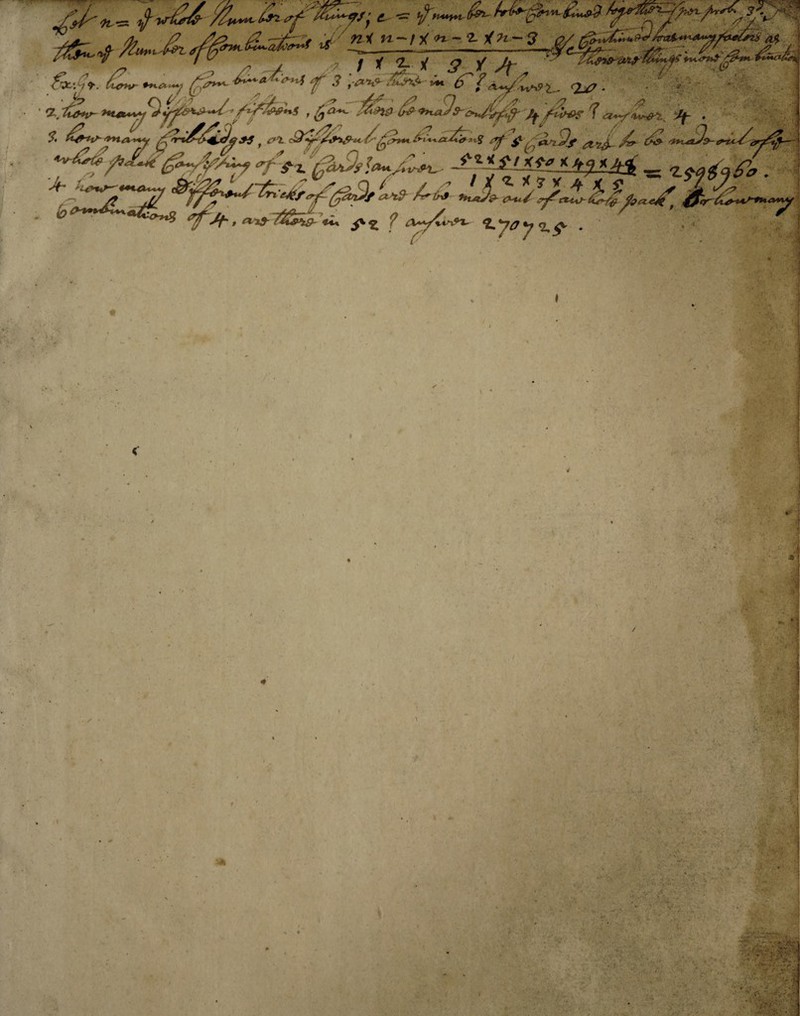 Let n = ye whole Number of things; c = ye number to be Combined together (per prob. 3d.)
then ye Number of Combinations is n × n - 1 × n - 2 × n - 3 &c Continued to as many factors as
1 × 2 × 3 × 4 there are things in one Combination
Ex: 1. how many Combinations of 3, are there in 6? answer 20.
2. how many Different fifteens, Can there be made out of ye 4 fives? answer 4.
3. how many Cribbidges, or Different Combinations of 5 Cards are to be made out of ye
whole pack Consisting of 52 Cards? answer 52 × 51 × 50 × 49 × 48 = 2598960.
1 × 2 × 3 × 4 × 5
4 how many Different tricks of Cards are to be made out of a whole pack, Or how many
Combinations of 4, are there in 52? answer 270725.